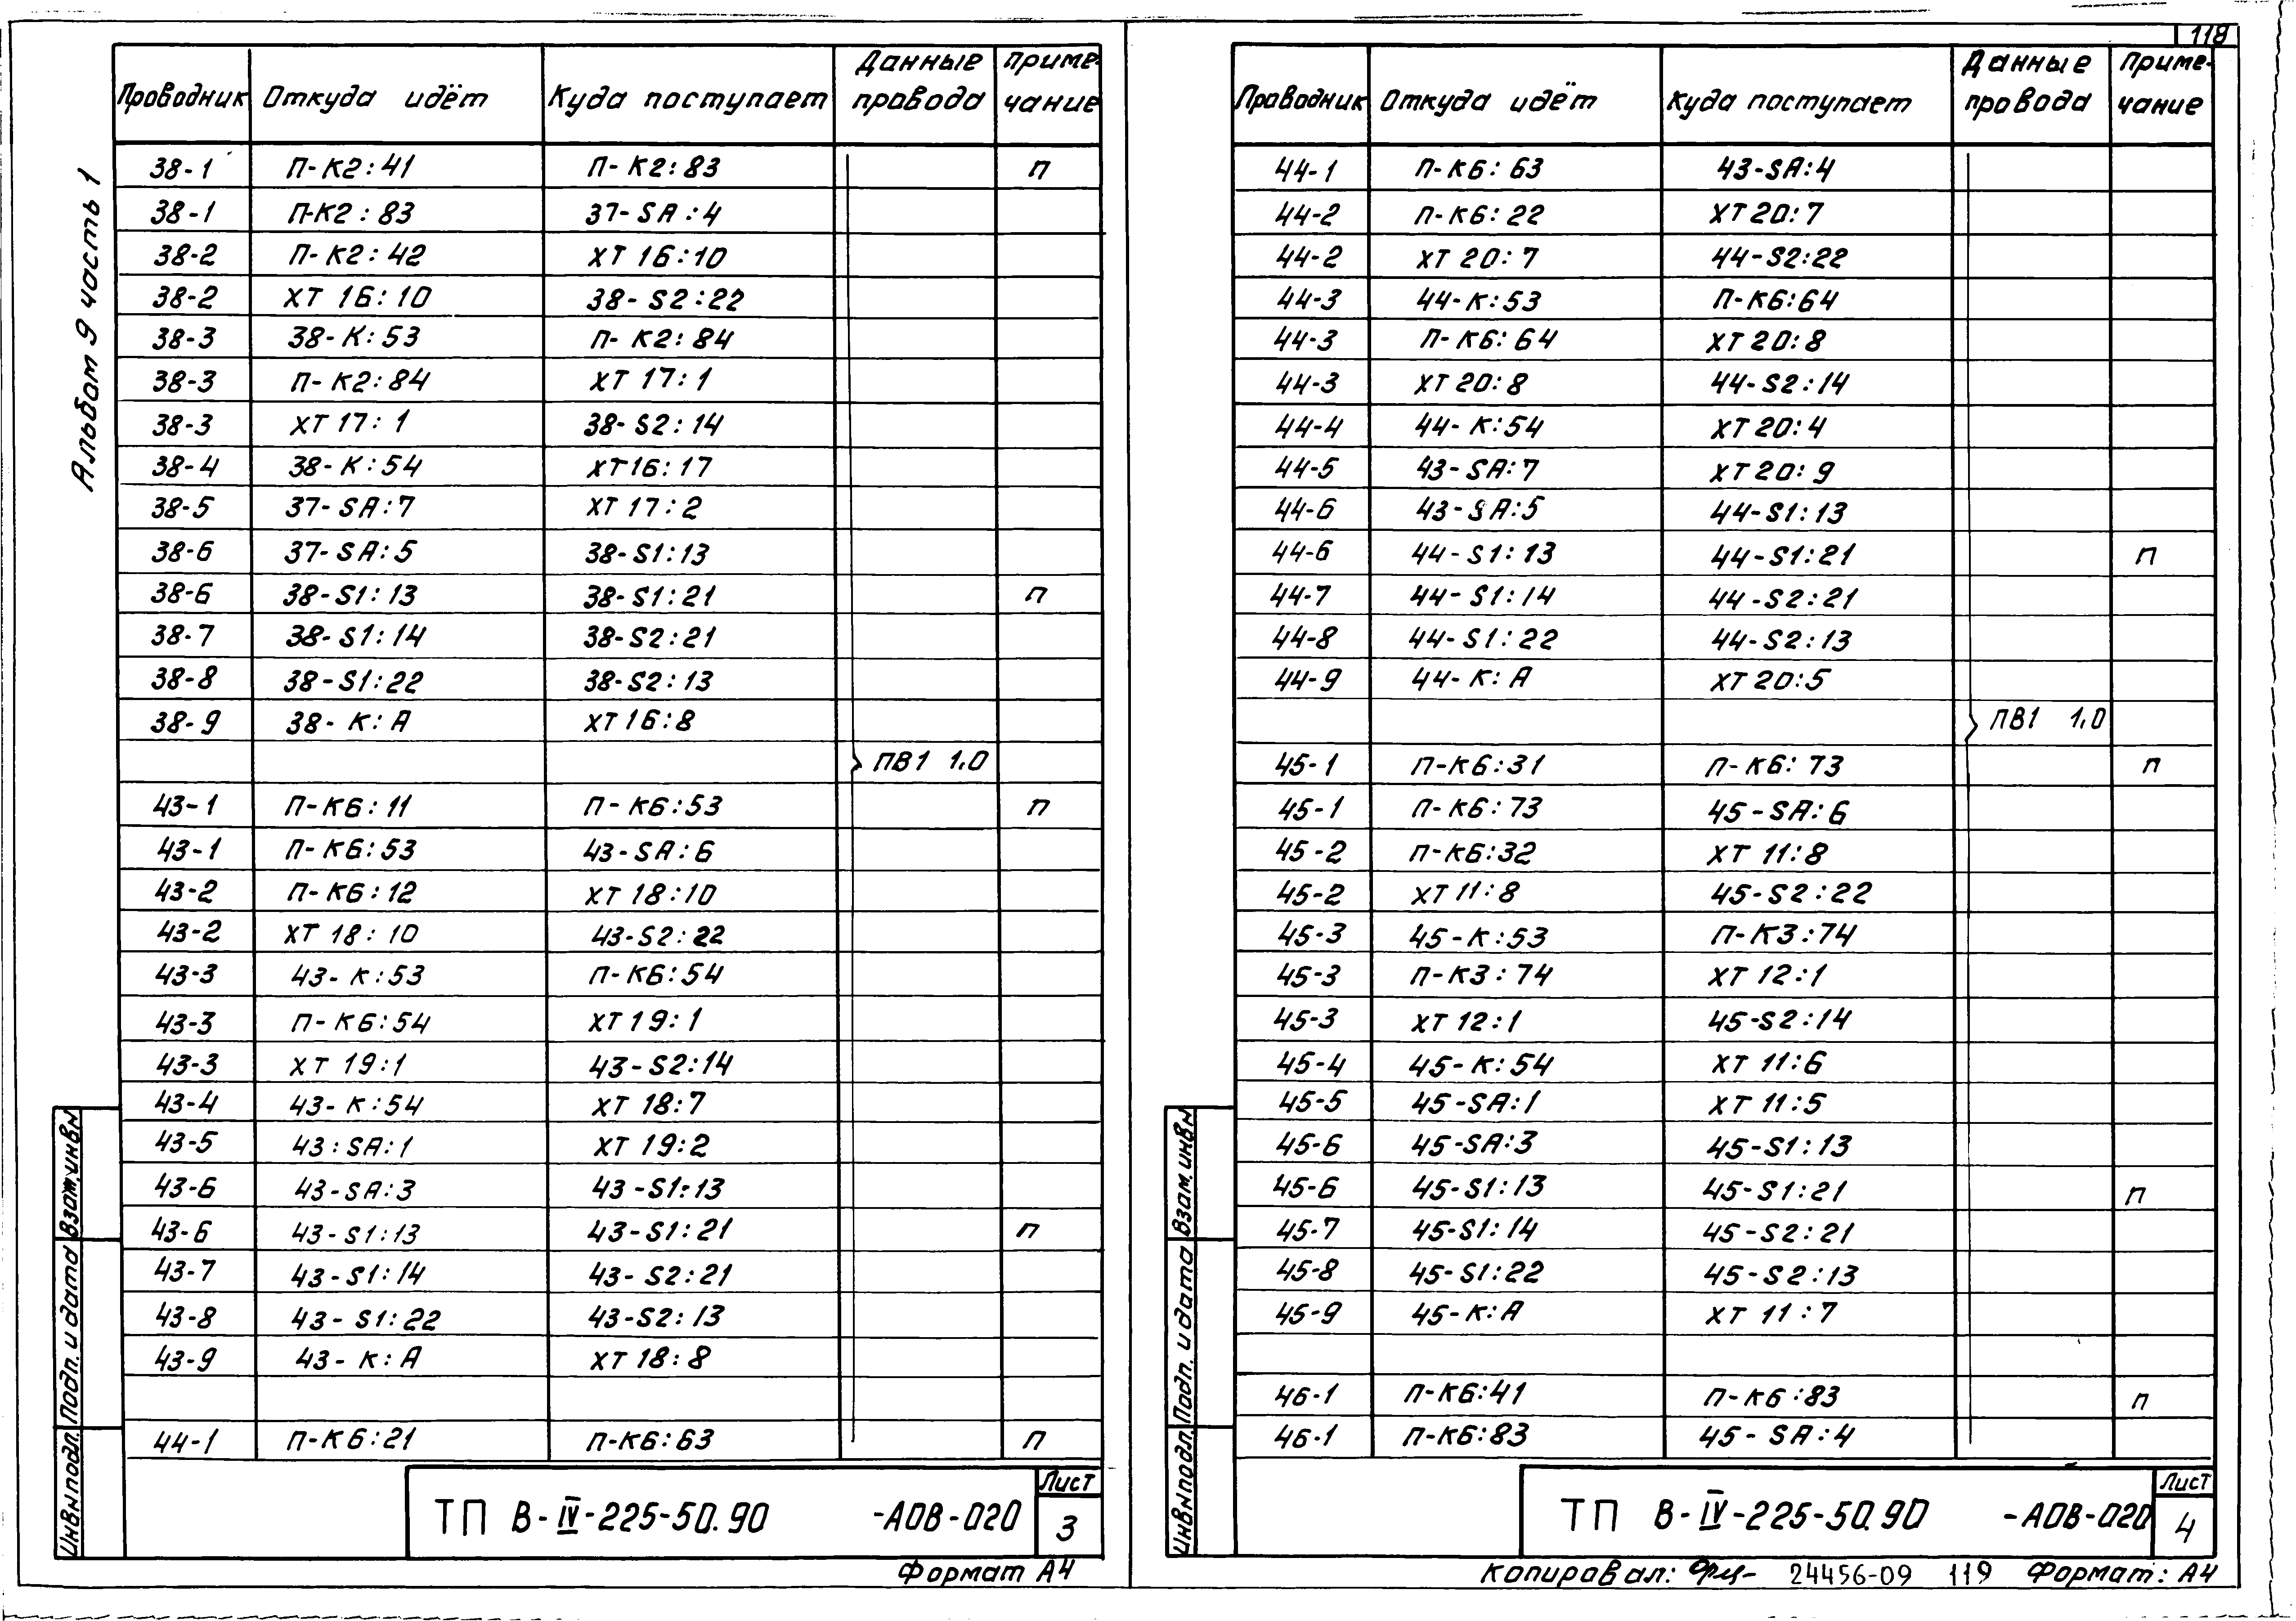 118
Альбом 9 часть 1
Проводник Откуда идёт Куда поступает Данные провода Примечание
38-1 П-К2:41 П-К2:83 п
38-1 П-К2:83 37-SA:4
38-2 П-К2:42 ХТ 16:10
38-2 ХТ 16:10 38-S2:22
38-3 38-К:53 П-К2:84
38-3 П-К2:84 ХТ 17:1
38-3 ХТ 17:1 38-S2:14
38-4 38-К:54 ХТ16:17
38-5 37-SA:7 ХТ 17:2
38-6 37-SA:5 38-S1:13
38-6 38-S1:13 38-S1:21 п
38-7 38-S1:14 38-S2:21
38-8 38-S1:22 38-S2:13
38-9 38-К:А ХТ 16:8
ПВ1 1,0
43-1 П-К6:11 П-К6:53 п
43-1 П-К6:53 43-SA:6
43-2 П-К6:12 ХТ 18:10
43-2 ХТ 18:10 43-S2:22
43-3 43-К:53 П-К6:54
43-3 П-К6:54 ХТ 19:1
43-3 ХТ 19:1 43-S2:14
43-4 43-К:54 ХТ 18:7
43-5 43:SA:1 ХТ 19:2
43-6 43-SA:3 43-S1:13
43-6 43-S1:13 43-S1:21 п
43-7 43-S1:14 43-S2:21
43-8 43-S1:22 43-S2:13
43-9 43-К:А ХТ 18:8
44-1 П-К6:21 П-К6:63 п
Инв.N подл. Подп. и дата Взам. инв.N
ТП В-IV-225-50.90 -АОВ-020
Лист
3
Формат А4
Проводник Откуда идёт Куда поступает Данные провода Примечание
44-1 П-К6:63 43-SA:4
44-2 П-К6:22 ХТ 20:7
44-2 ХТ 20:7 44-S2:22
44-3 44-К:53 П-К6:64
44-3 П-К6:64 ХТ 20:8
44-3 ХТ 20:8 44-S2:14
44-4 44-К:54 ХТ 20:4
44-5 43-SA:7 ХТ 20:9
44-6 43-SA:5 44-S1:13
44-6 44-S1:13 44-S1:21 п
44-7 44-S1:14 44-S2:21
44-8 44-S1:22 44-S2:13
44-9 44-К:А ХТ 20:5
ПВ1 1,0
45-1 П-К6:31 П-К6:73 п
45-1 П-К6:73 45-SA:6
45-2 П-К6:32 ХТ 11:8
45-2 ХТ 11:8 45-S2:22
45-3 45-К:53 П-К3:74
45-3 П-К3:74 ХТ 12:1
45-3 ХТ 12:1 45-S2:14
45-4 45-К:54 ХТ 11:6
45-5 45-SA:1 ХТ 11:5
45-6 45-SA:3 45-S1:13
45-6 45-S1:13 45-S1:21 п
45-7 45-S1:14 45-S2:21
45-8 45-S1:22 45-S2:13
45-9 45-К:А ХТ 11:7
46-1 П-К6:41 П-К6:83 п
46-1 П-К6:83 45-SA:4
Инв.N подл. Подп. и дата Взам. инв.N
ТП В-IV-225-50.90 -АОВ-020
Лист
4
Копировал: 24456-09 119 Формат: А4